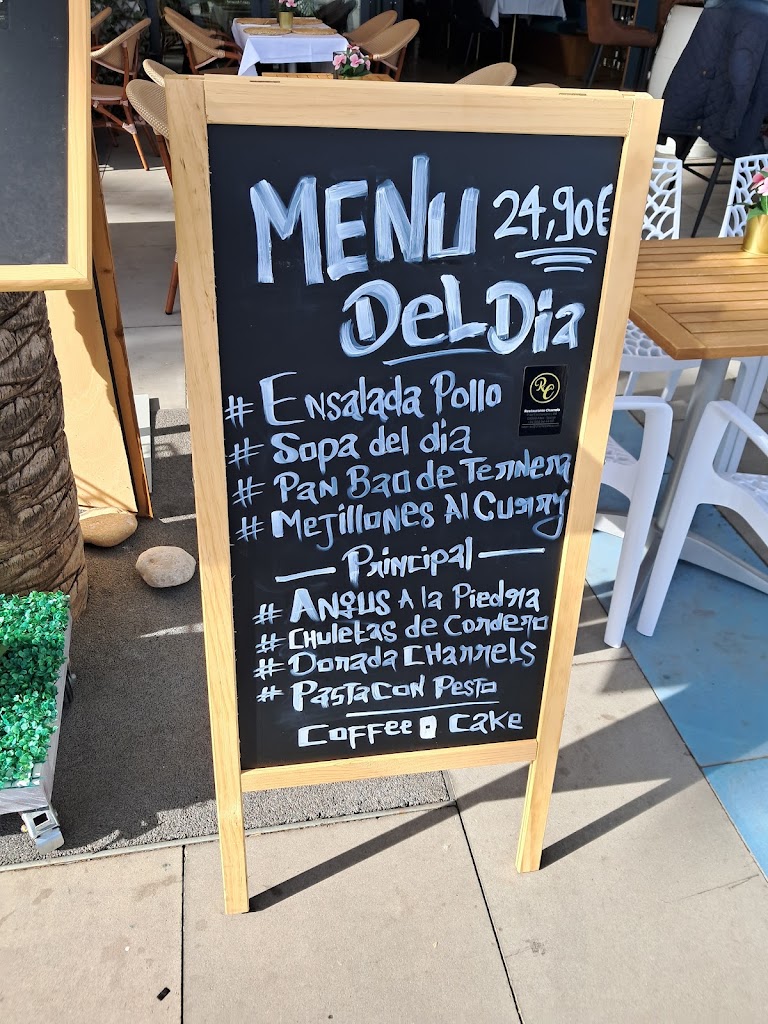 MENU 24,90€
DEL DIA
# ENSALADA POLLO
# SOPA del dia
# PAN BAO DE TERNERA
# MEJILLONES Al CURRY
Principal
# ANGUS A la Piedra
# CHULETAS de CORDERO
# DORADA CHARRELS
# PASTA CON PESTO
COFFEE o CAKE
RC